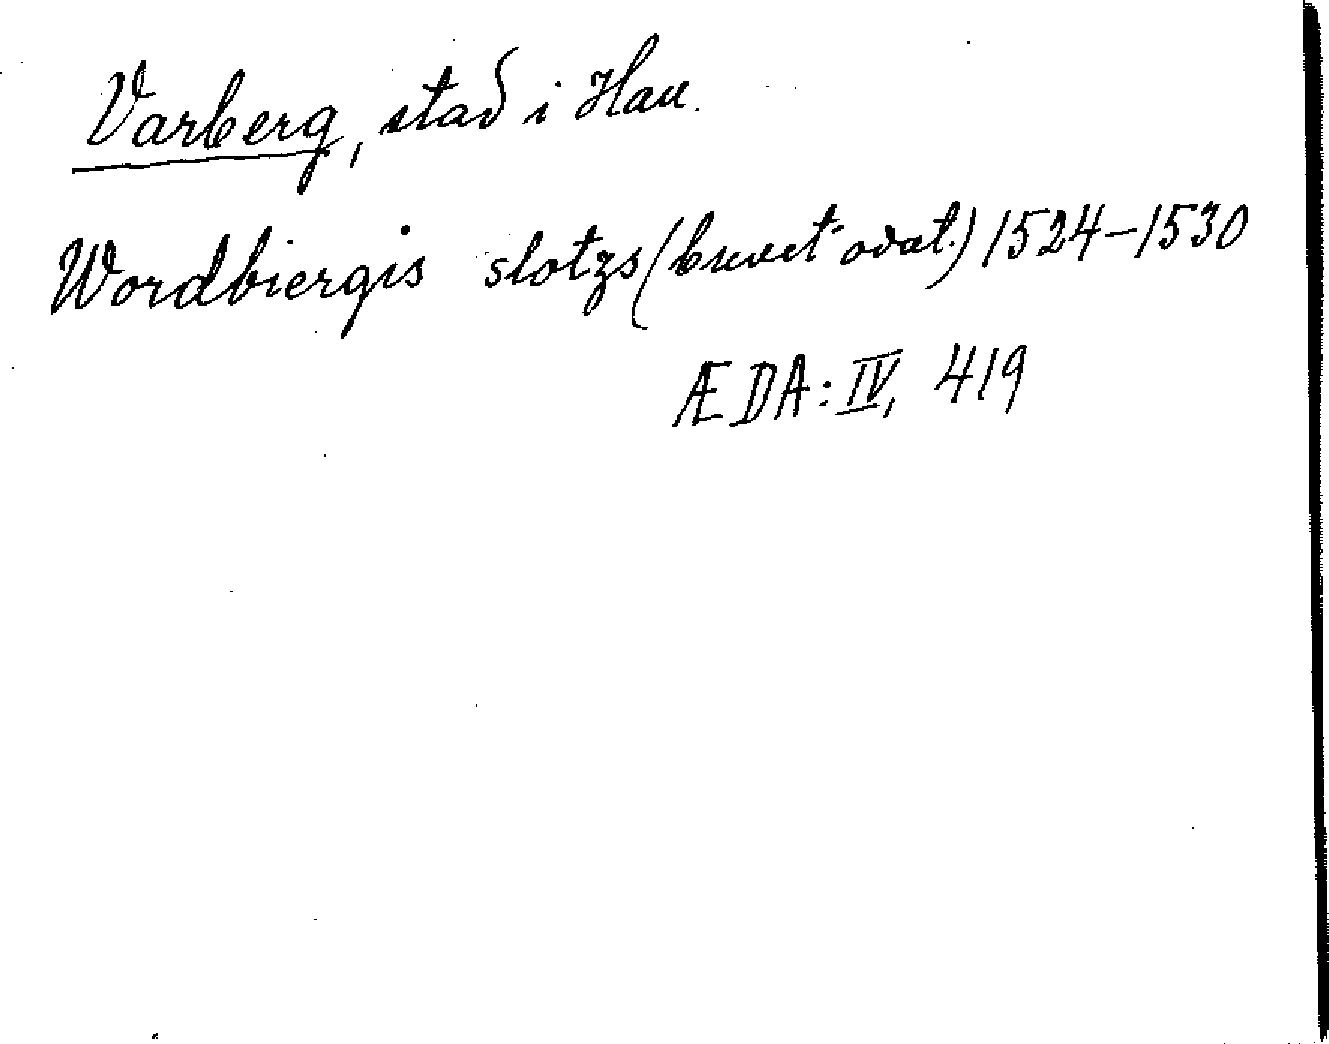 Varberg, stad i Hall.
Wordbiergis slotzs (brevet odat.) 1524-1530
ÆDA: IV, 419